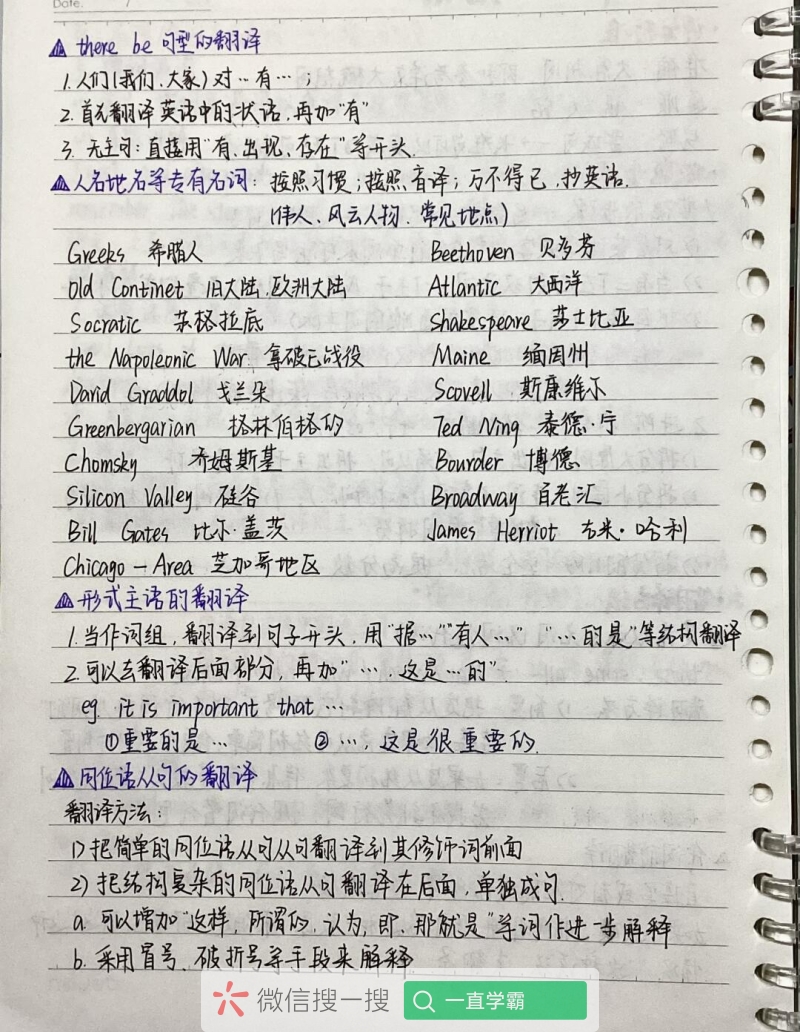 Date.
there be 句型的翻译
1. 人们(我们、大家)对…有…;
2. 首先翻译英语中的状语,再加"有"
3. 无主句:直接用"有、出现、存在"等开头.
人名地名等专有名词:按照习惯;按照音译;万不得已,抄英语.
(伟人、风云人物、常见地点)
Greeks 希腊人 Beethoven 贝多芬
Old Continet 旧大陆.欧洲大陆 Atlantic 大西洋
Socratic 苏格拉底 Shakespeare 莎士比亚
the Napoleonic War 拿破仑战役 Maine 缅因州
David Graddol 戈兰朵 Scovell 斯康维尔
Greenbergarian 格林伯格的 Ted Ning 泰德·宁
Chomsky 乔姆斯基 Bourder 博德
Silicon Valley 硅谷 Broadway 百老汇
Bill Gates 比尔·盖茨 James Herriot 吉米·哈利
Chicago-Area 芝加哥地区
形式主语的翻译
1. 当作词组,翻译到句子开头,用"据…""有人…""…的是"等结构翻译
2. 可以去翻译后面部分,再加"…,这是…的".
eg. it is important that …
①重要的是… ②…,这是很重要的.
同位语从句的翻译
翻译方法:
1) 把简单的同位语从句从句翻译到其修饰词前面
2) 把结构复杂的同位语从句翻译在后面,单独成句.
a. 可以增加"这样,所谓的,认为,即,那就是"等词作进一步解释
b. 采用冒号、破折号等手段来解释
微信搜一搜 一直学霸